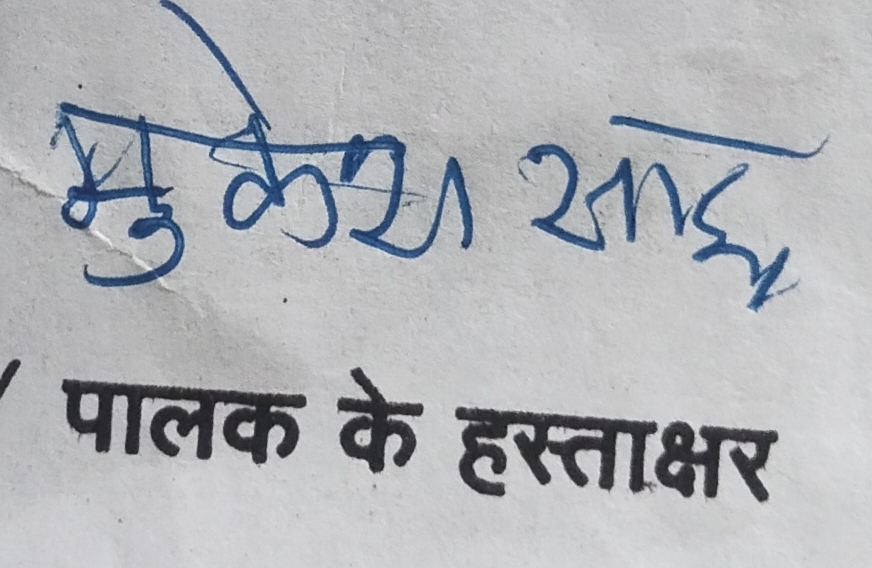 मुकेश साहू
पालक के हस्ताक्षर